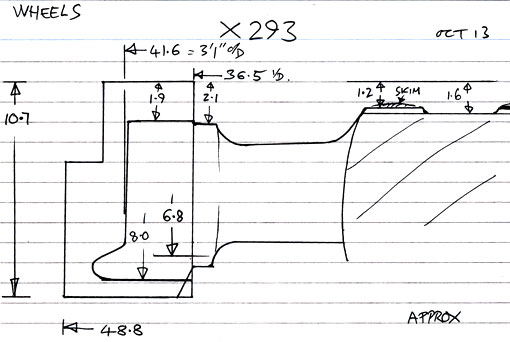 WHEELS
X293
OCT 13
41.6 = 3'1" O/D
36.5 I/D.
1.9
2.1
1.2
SKIM
1.6
10.7
6.8
8.0
48.8
APPROX